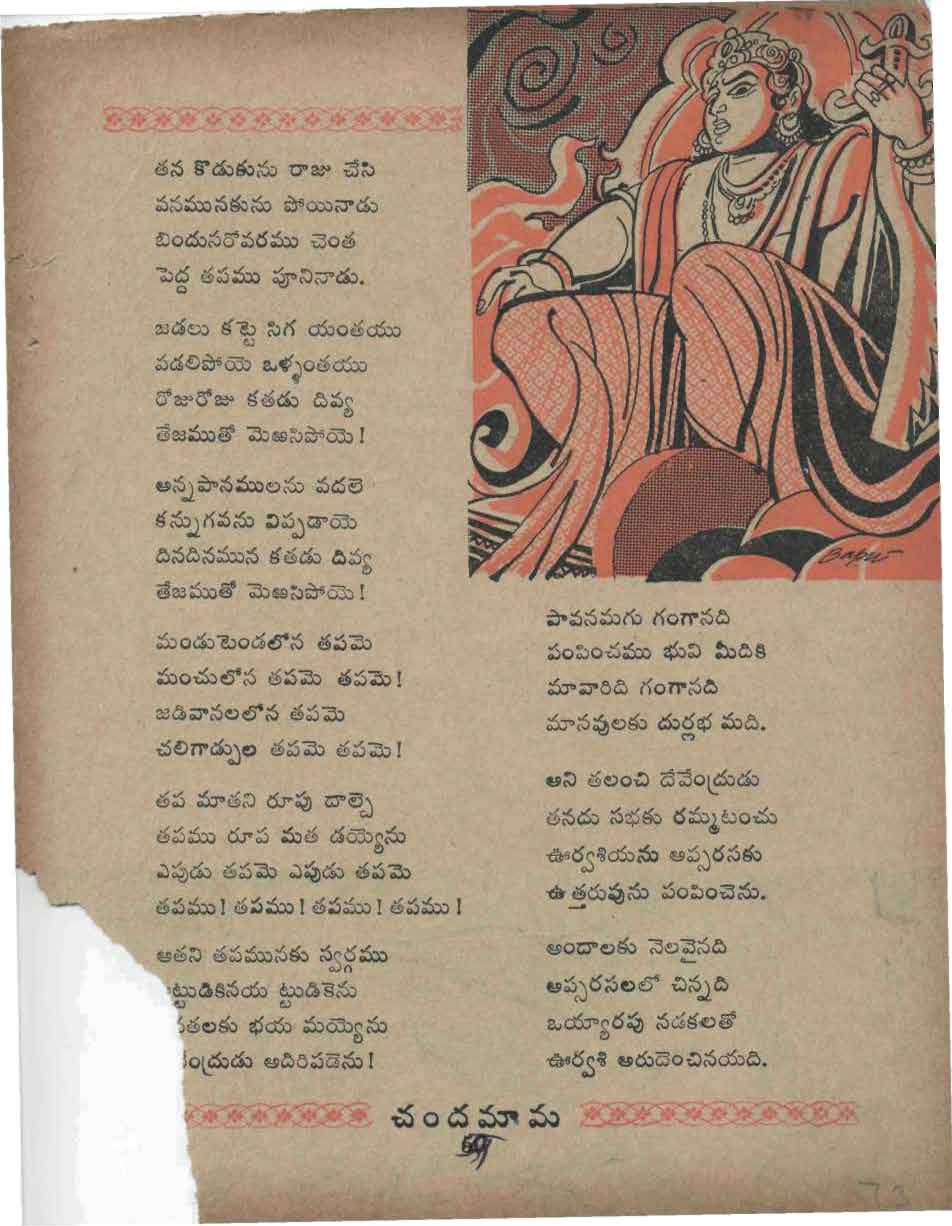 తన కొడుకును రాజు చేసి
వనమునకును పోయినాడు
బిందుసరోవరము చెంత
పెద్ద తపము పూనినాడు.
జడలు కట్టె సిగ యంతయు
వడలిపోయె ఒళ్ళంతయు
రోజురోజు కతడు దివ్య
తేజముతో మెఱసిపోయె!
అన్నపానములను వదలె
కన్నుగవను విప్పడాయె
దినదినమున కతడు దివ్య
తేజముతో మెఱసిపోయె!
మండుటెండలోన తపమె
మంచులోన తపమె తపమె!
జడివానలలోన తపమె
చలిగాడ్పుల తపమె తపమె!
తప మాతని రూపు దాల్చె
తపము రూప మత డయ్యెను
ఎపుడు తపమె ఎపుడు తపమె
తపము! తపము! తపము! తపము!
ఆతని తపమునకు స్వర్గము
ట్టుడికినయ ట్టుడికెను
తలకు భయ మయ్యెను
ంద్రుడు అదిరిపడెను!
Bapu
పావనమగు గంగానది
పంపించము భువి మీదికి
మావారిది గంగానది
మానవులకు దుర్లభ మది.
అని తలంచి దేవేంద్రుడు
తనదు సభకు రమ్మటంచు
ఊర్వశియను అప్సరసకు
ఉత్తరువును పంపించెను.
అందాలకు నెలవైనది
అప్సరసలలో చిన్నది
ఒయ్యారపు నడకలతో
ఊర్వశి అరుదెంచినయది.
చందమామ
73